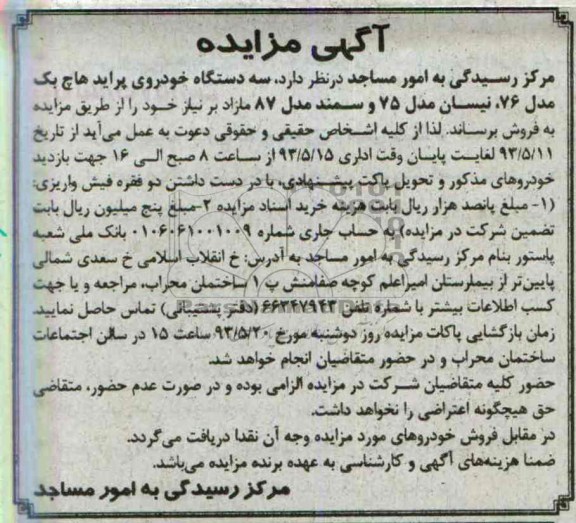 آگهی مزایده
مرکز رسیدگی به امور مساجد درنظر دارد، سه دستگاه خودروی پراید هاچ بک
مدل ۷۶، نیسان مدل ۷۵ و سمند مدل ۸۷ مازاد بر نیاز خود را از طریق مزایده
به فروش برساند. لذا از کلیه اشخاص حقیقی و حقوقی دعوت به عمل می‌آید از تاریخ
۹۳/۵/۱۱ لغایت پایان وقت اداری ۹۳/۵/۱۵ از ساعت ۸ صبح الی ۱۶ جهت بازدید
خودروهای مذکور و تحویل پاکت پیشنهادی، با در دست داشتن دو فقره فیش واریزی:
(۱- مبلغ پانصد هزار ریال بابت هزینه خرید اسناد مزایده ۲-مبلغ پنج میلیون ریال بابت
تضمین شرکت در مزایده) به حساب جاری شماره ۰۱۰۶۰۶۱۰۰۱۰۰۹ بانک ملی شعبه
پاستور بنام مرکز رسیدگی به امور مساجد به آدرس: خ انقلاب اسلامی خ سعدی شمالی
پایین‌تر از بیمارستان امیراعلم کوچه صفامنش پ ۱ ساختمان محراب، مراجعه و یا جهت
کسب اطلاعات بیشتر با شماره تلفن ۶۶۳۴۷۹۴۳ (دفتر پشتیبانی) تماس حاصل نمایید.
زمان بازگشایی پاکات مزایده روز دوشنبه مورخ ۹۳/۵/۲۰ ساعت ۱۵ در سالن اجتماعات
ساختمان محراب و در حضور متقاضیان انجام خواهد شد.
حضور کلیه متقاضیان شرکت در مزایده الزامی بوده و در صورت عدم حضور، متقاضی
حق هیچگونه اعتراضی را نخواهد داشت.
در مقابل فروش خودروهای مورد مزایده وجه آن نقدا دریافت می‌گردد.
ضمنا هزینه‌های آگهی و کارشناسی به عهده برنده مزایده می‌باشد.
مرکز رسیدگی به امور مساجد